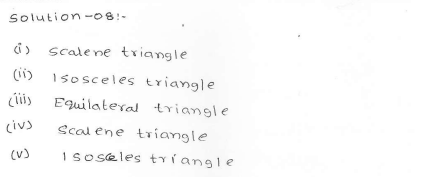 Solution-08:-
(i) Scalene triangle
(ii) Isosceles triangle
(iii) Equilateral triangle
(iv) Scalene triangle
(v) Isosceles triangle